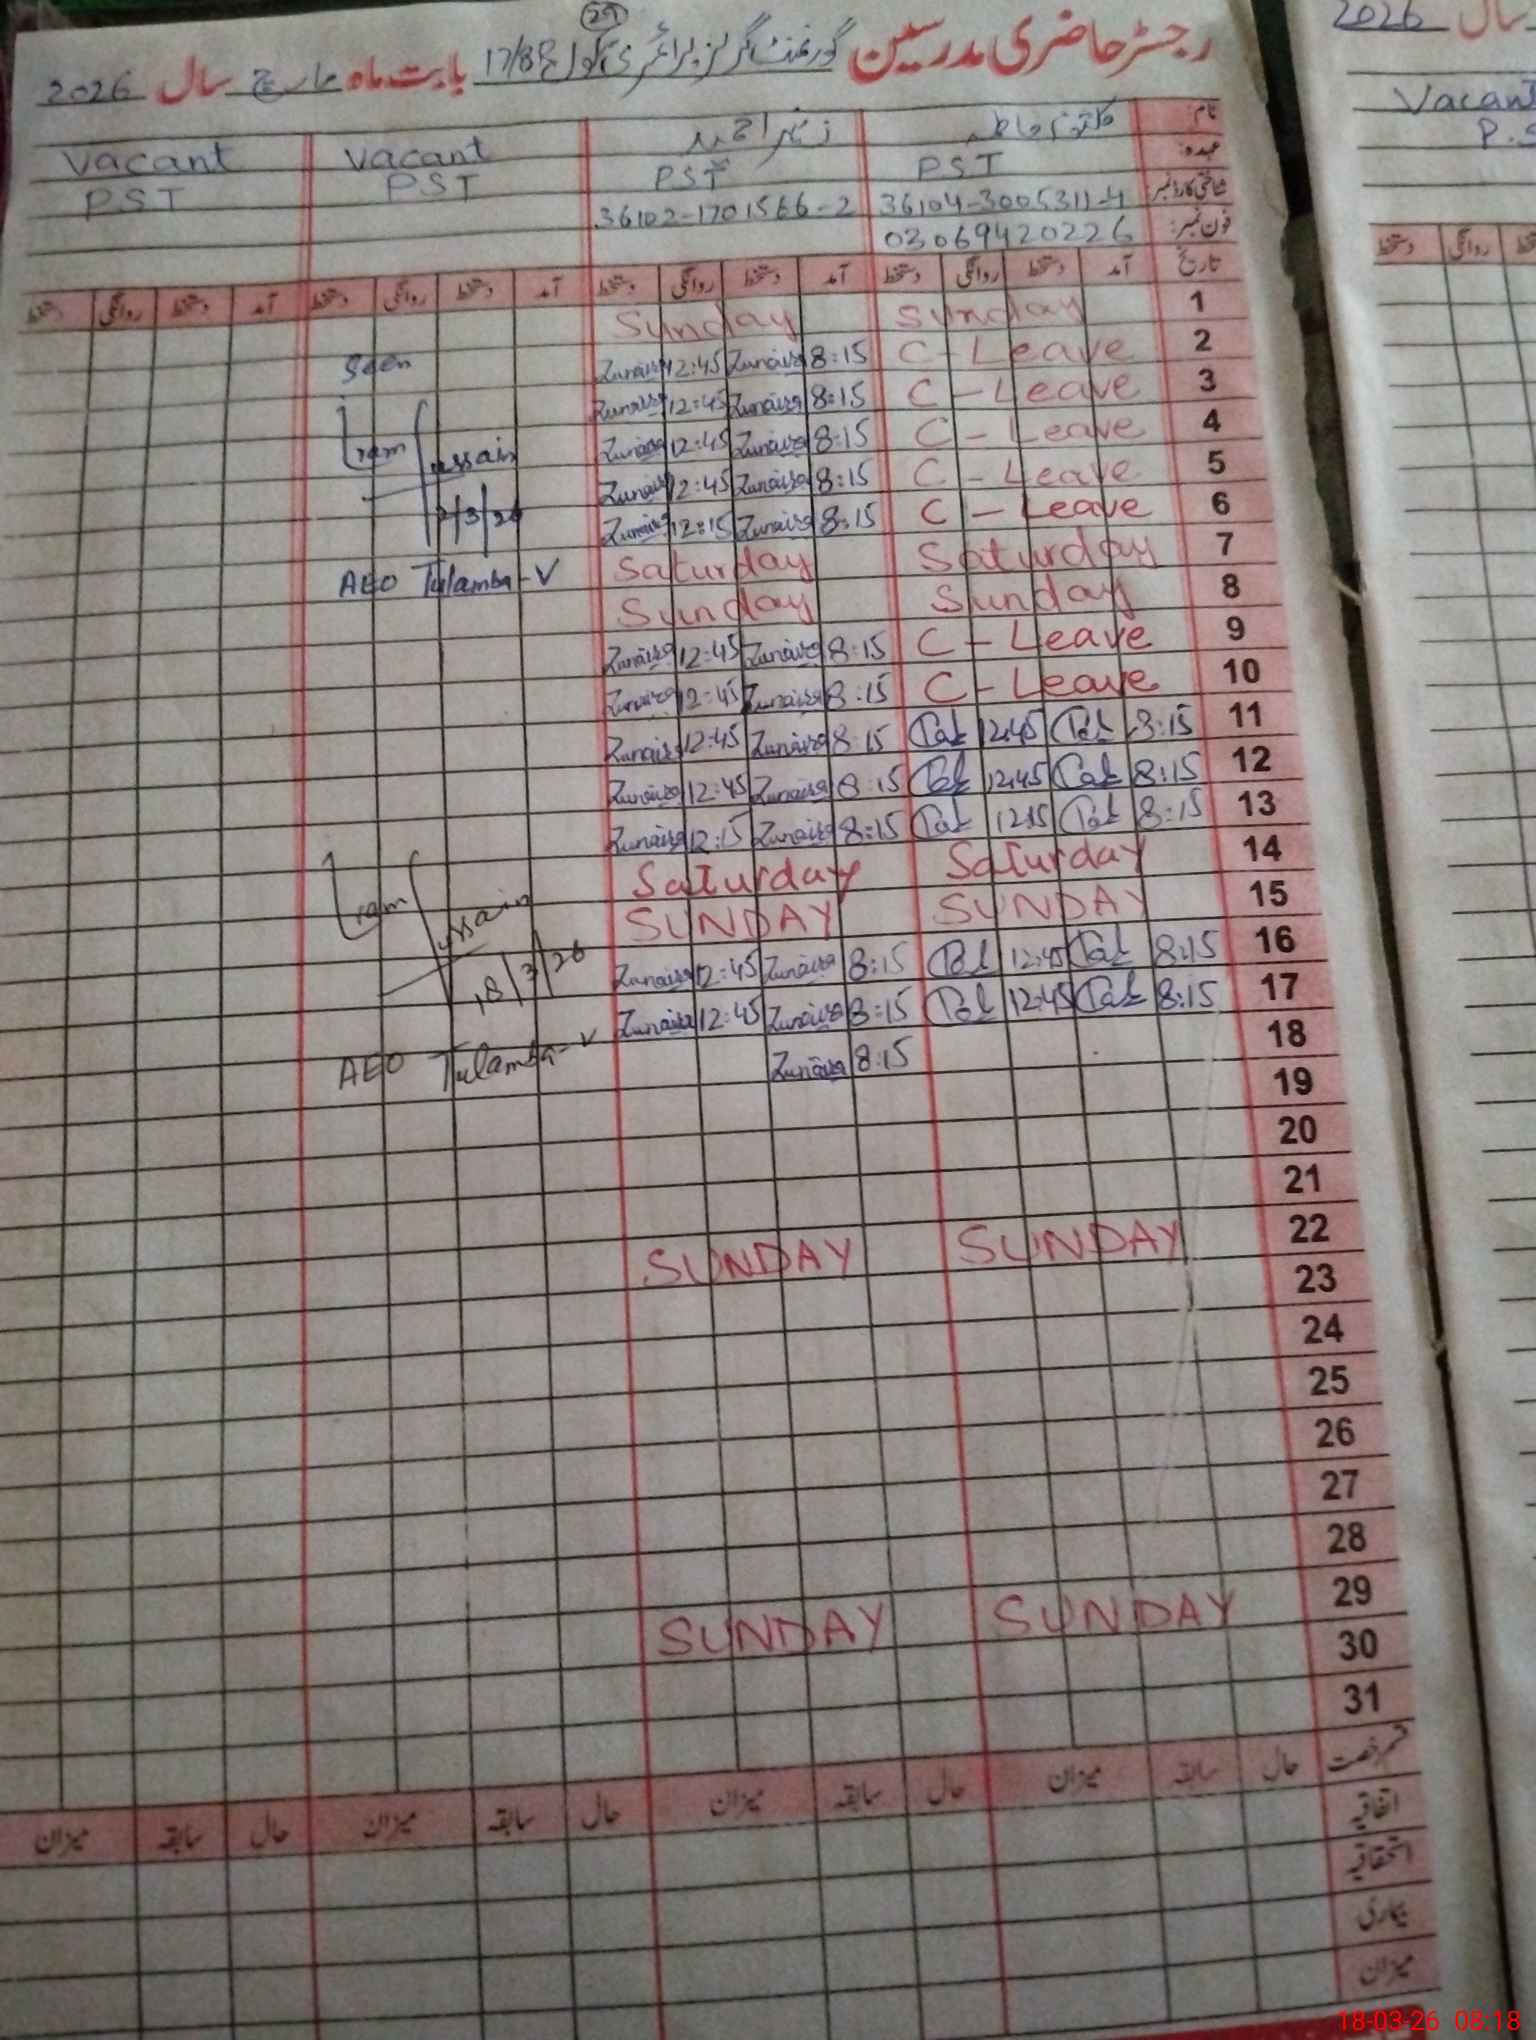 رجسٹر حاضری مدرسین گورنمنٹ گرلز پرائمری سکول 17/8R بابت ماہ مارچ سال 2026
29
2026 سال
نام:
زنیرا احمد Vacant Vacant
عہدہ: PST PST PST PST
شناختی کارڈ نمبر: 36104-3005311-4 36102-1701566-2
فون نمبر: 03069420226
Vacant
P.S
تاریخ آمد دستخط روانگی دستخط آمد دستخط روانگی دستخط آمد دستخط روانگی دستخط آمد دستخط روانگی دستخط
روانگی دستخط
1 Sunday Sunday
2 C-Leave 8:15 Zunaira 12:45 Zunaira
3 C-Leave 8:15 Zunaira 12:45 Zunaira
4 C-Leave 8:15 Zunaira 12:45 Zunaira
5 C-Leave 8:15 Zunaira 12:45 Zunaira
6 C-Leave 8:15 Zunaira 12:15 Zunaira
7 Saturday Saturday
8 Sunday Sunday
9 C-Leave 8:15 Zunaira 12:45 Zunaira
10 C-Leave 8:15 Zunaira 12:45 Zunaira
11 8:15 12:45 8:15 Zunaira 12:45 Zunaira
12 8:15 12:45 8:15 Zunaira 12:45 Zunaira
13 8:15 12:15 8:15 Zunaira 12:15 Zunaira
14 Saturday Saturday
15 SUNDAY SUNDAY
16 8:15 12:45 8:15 Zunaira 12:45 Zunaira
17 8:15 12:45 8:15 Zunaira 12:45 Zunaira
18 8:15 Zunaira
19
20
21
22 SUNDAY SUNDAY
23
24
25
26
27
28
29 SUNDAY SUNDAY
30
31
Seen
/3/26
AEO Tulamba-V
18/3/26
AEO Tulamba-V
قسم رخصت حال سابقہ میزان حال سابقہ میزان حال سابقہ میزان حال سابقہ میزان
اتفاقیہ
استحقاقیہ
بیماری
میزان
18-03-26 08:18